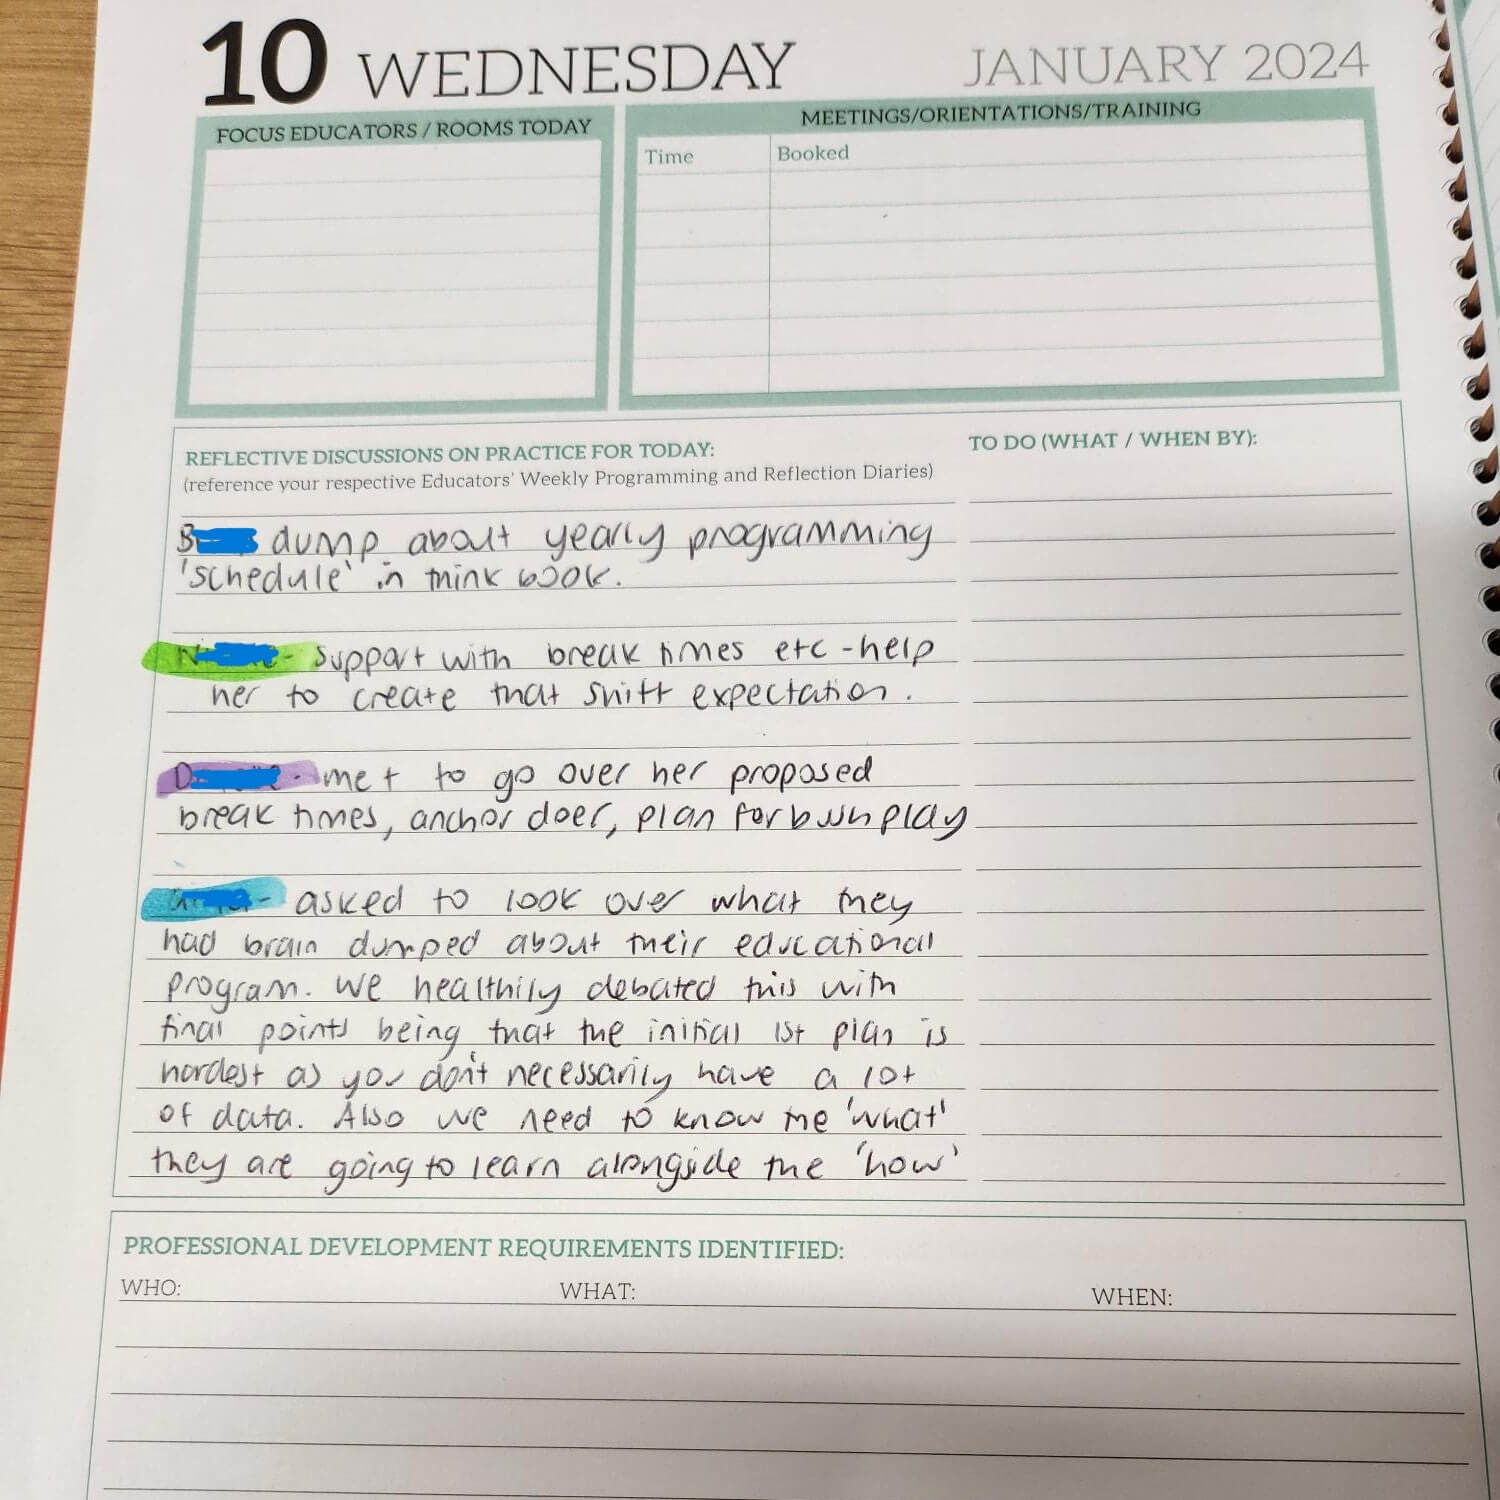 10 WEDNESDAY
JANUARY 2024
FOCUS EDUCATORS / ROOMS TODAY
MEETINGS/ORIENTATIONS/TRAINING
Time
Booked
REFLECTIVE DISCUSSIONS ON PRACTICE FOR TODAY:
(reference your respective Educators' Weekly Programming and Reflection Diaries)
TO DO (WHAT / WHEN BY):
dump about yearly programming
'schedule' in think book.
support with break times etc - help
her to create that shift expectation.
met to go over her proposed
break times, anchor doer, plan for bush play
asked to look over what they
had brain dumped about their educational
program. We healthily debated this with
final points being that the initial 1st plan is
hardest as you don't necessarily have a lot
of data. Also we need to know the 'what'
they are going to learn alongside the 'how'
PROFESSIONAL DEVELOPMENT REQUIREMENTS IDENTIFIED:
WHO:
WHAT:
WHEN: